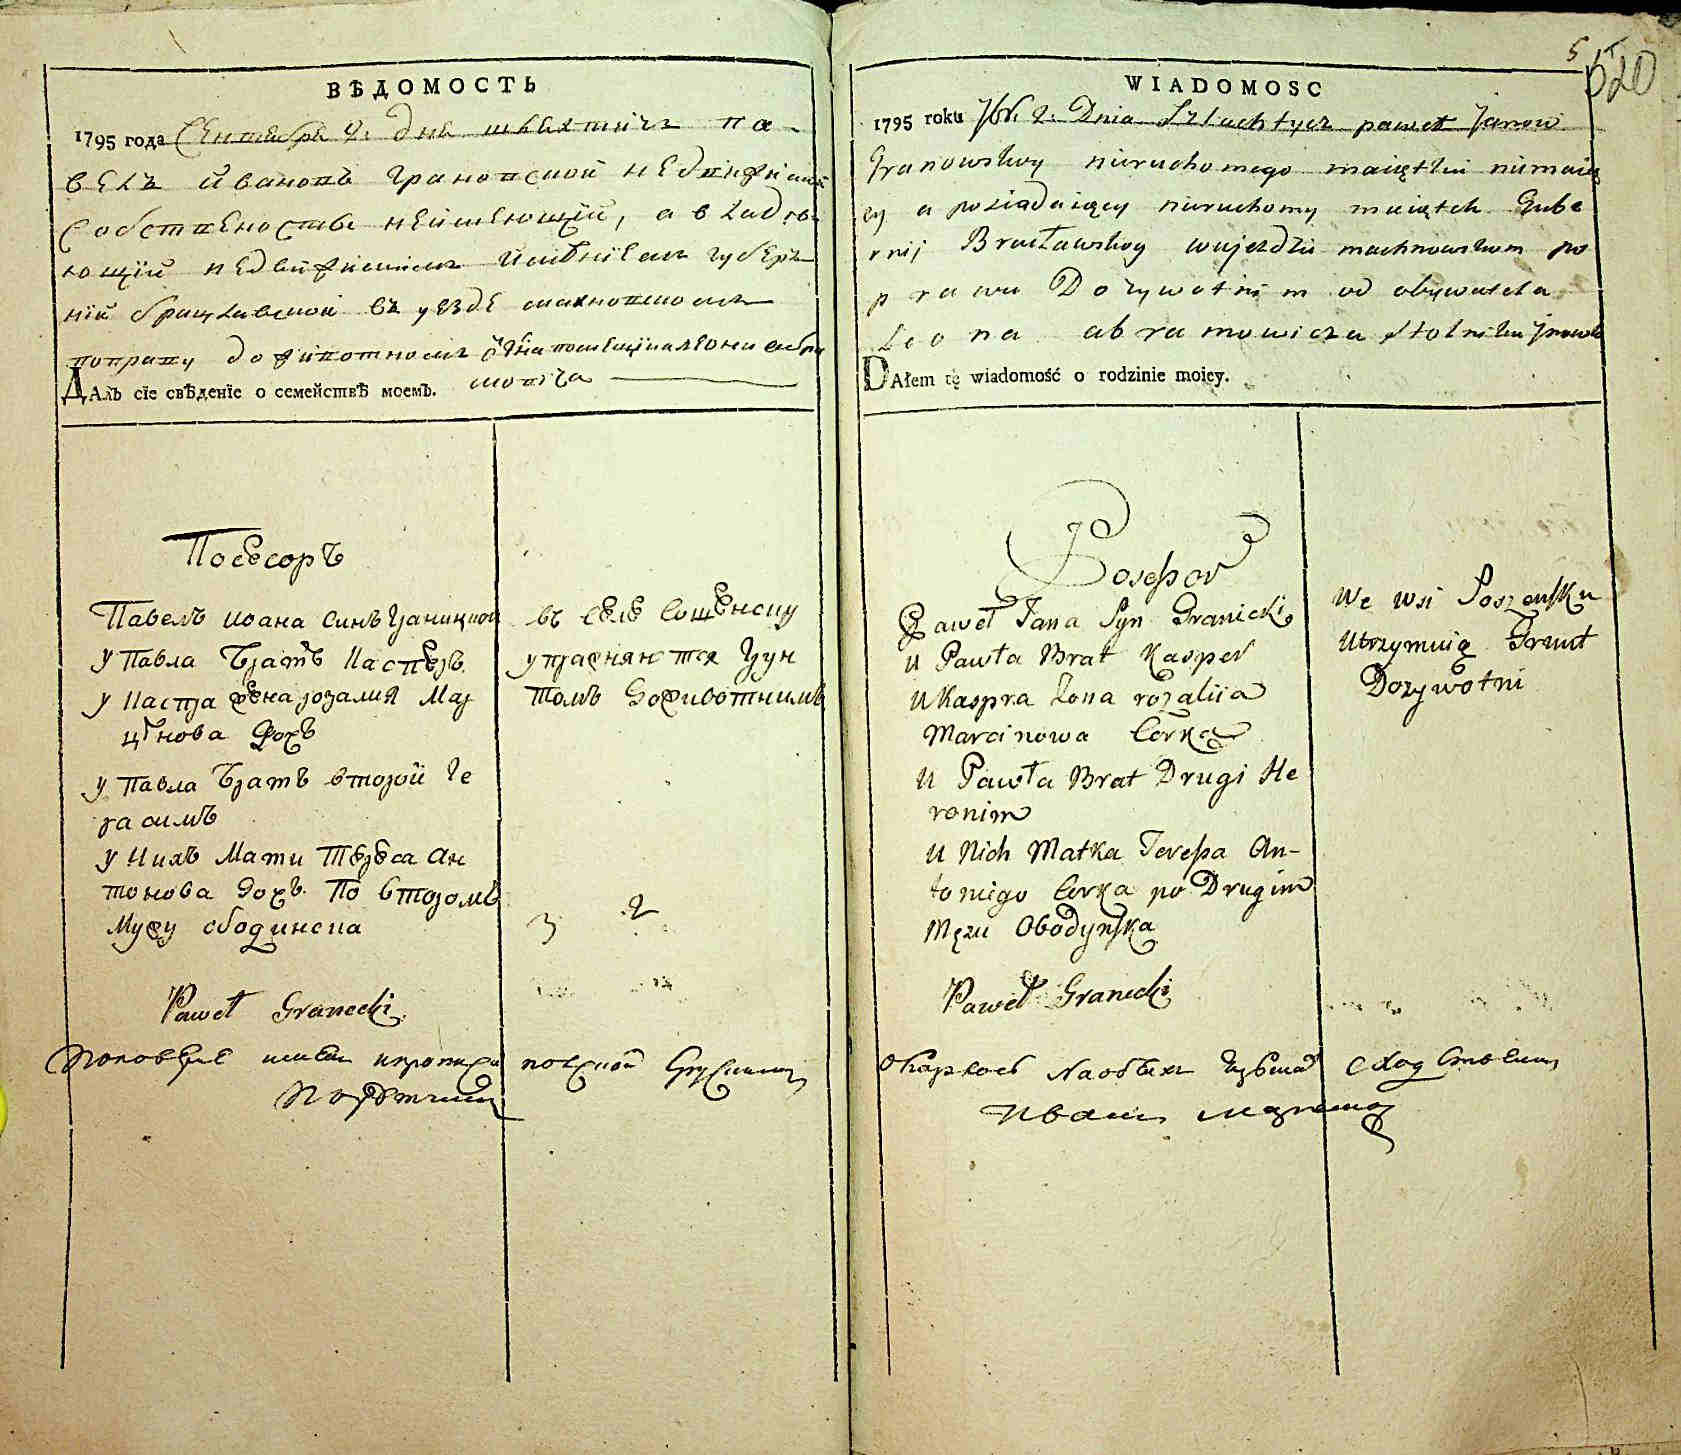 ВѢДОМОСТЬ
1795 года Сентября 2. дня шляхтичъ Па-
велъ Ивановъ Грановской недвижимой
собственности неимеющій, а владею-
ющій недвижимымъ имѣніемъ губер-
ніи Брацлавской въ уезде махновскомъ
по праву доживотномъ
Далъ сіе свѣденіе о семействѣ моемъ.
Посесоръ
Павелъ иоана синъ Границкой
у Павла Братъ Касперъ
у Каспра жена розалия Мар
цѣнова дохъ
у Павла Братъ второй Ге
расимъ
у нихъ Мати Тереса Ан
тонова дохъ По второмъ
Мужу ободинска
въ селе Сошенску
упражняются Грун
томъ Доживотнимъ
3 2
Paweł Granecki
5
520
WIADOMOSC
1795 roku 7br. 2. Dnia Szlachtycz paweł Janow
Granowskoy nieruchomego maiętku niemaią
cy a posiadaiący nieruchomy maiątek Gube
rnij Bracławskoy wujezdzie machnowskom po
prawu Dozywotnim od obywatela
Leona abramowicza Stolnika
DAłem tę wiadomość o rodzinie moiey.
Posessor
Paweł Jana Syn Granicki
U Pawła Brat Kasper
U Kaspra Zona rozaliia
Marcinowa Corka
U Pawła Brat Drugi He
ronim
U Nich Matka Teressa An-
toniego Corka po Drugim
Męzu Obodynska
We wsi Soszansku
Utrzymuią Grunt
Dozywotni
Paweł Granecki